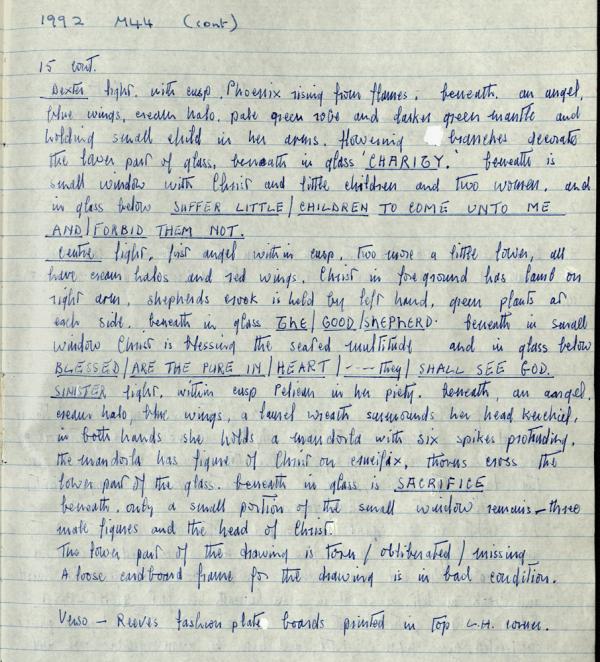 1992 M44 (cont)
15 cont.
Dexter light. with cusp. Phoenix rising from flames. beneath. an angel,
blue wings, cream halo, pale green robe and darker green mantle and
holding small child in her arms. flowering branches decorate
the lower part of glass. beneath in glass 'CHARITY.' beneath is
small window with Christ and little children and two women. and
in glass below SUFFER LITTLE/CHILDREN TO COME UNTO ME
AND/FORBID THEM NOT.
Centre light, first angel within cusp. two more a little lower, all
have cream halos and red wings. Christ in foreground has lamb on
right arm, shepherds crook is held by left hand, green plants at
each side. beneath in glass The/GOOD/SHEPHERD. beneath in small
window Christ is blessing the seated multitude and in glass below
BLESSED/ARE THE PURE IN/HEART/----they/SHALL SEE GOD.
SINISTER light. within cusp Pelican in her piety. beneath, an aangel.
cream halo, blue wings, a laurel wreath surrounds her head kerchief,
in both hands she holds a mandorla with six spikes protruding.
the mandorla has figure of Christ on crucifix, thorns cross the
lower part of the glass. beneath in glass is SACRIFICE
beneath. only a small portion of the small window remains - three
male figures and the head of Christ.
The lower part of the drawing is torn/obliterated/missing
A loose cardboard frame for the drawing is in bad condition.
Verso - Reeves fashion plate boards printed in top L.H. corner.